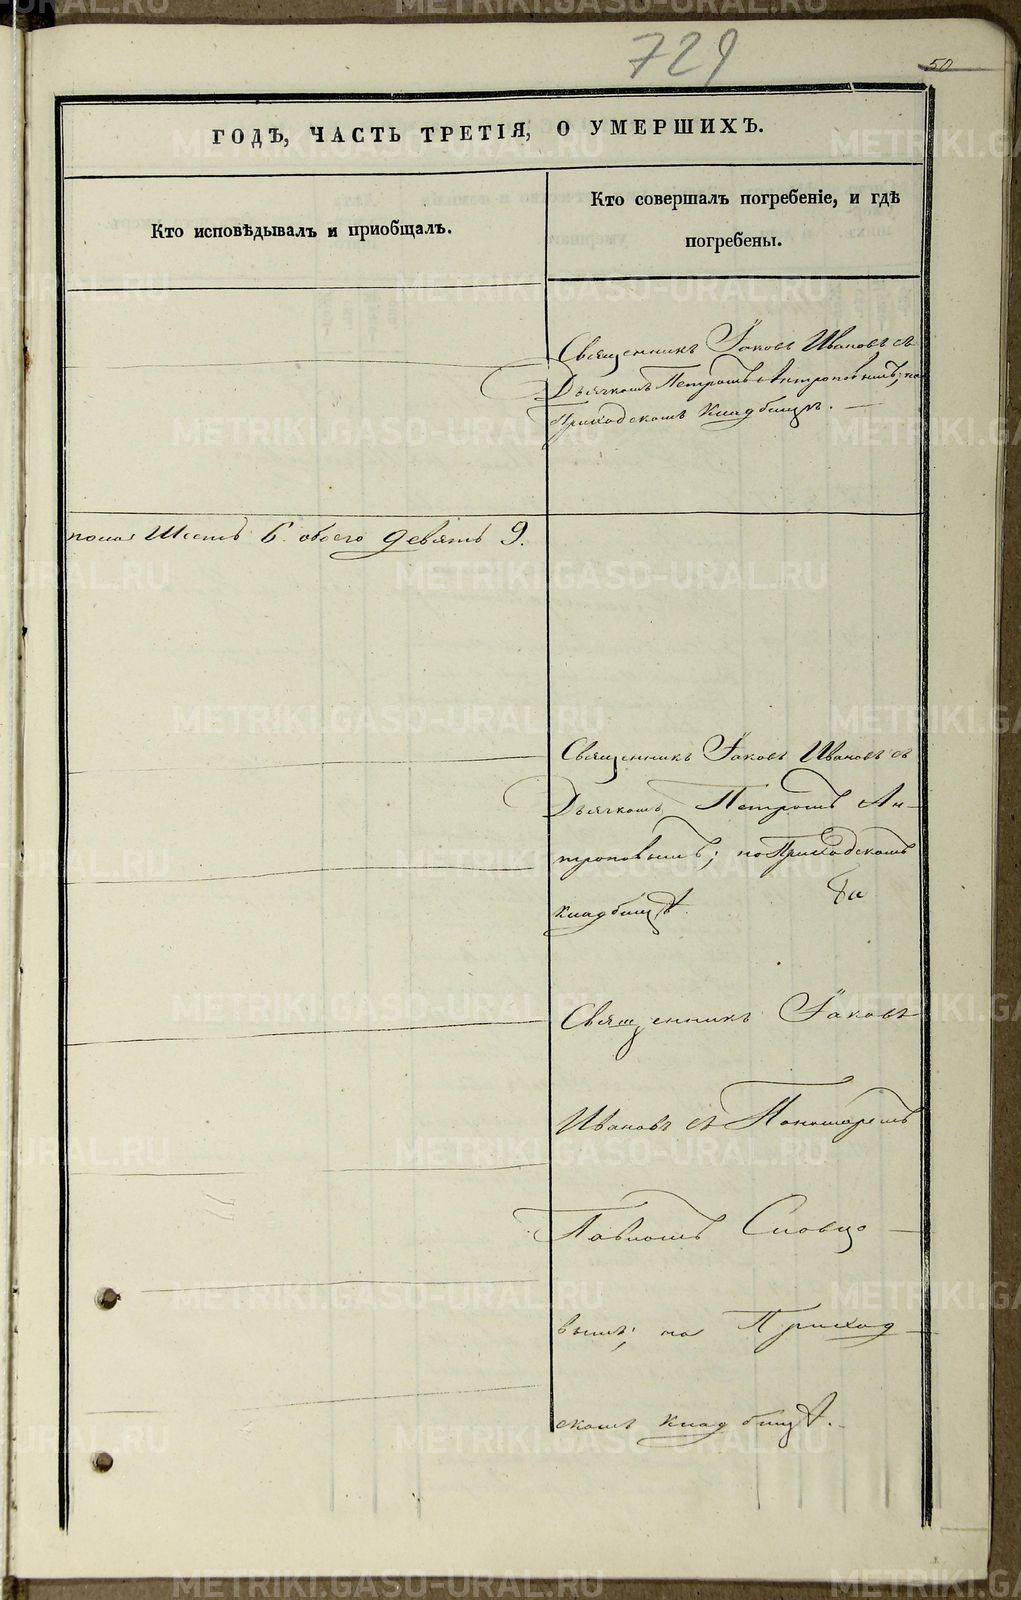 729
50
ГОДЪ, ЧАСТЬ ТРЕТІЯ, О УМЕРШИХЪ.
Кто исповѣдывалъ и приобщалъ.
Кто совершалъ погребеніе, и гдѣ
погребены.
Священникъ Іаковъ Ивановъ съ
Дьячкомъ Петромъ Антроповымъ; на
Приходскомъ кладбищѣ.
пола Шесть 6. обоего девять 9.
Священникъ Іаковъ Ивановъ съ
Дьячкомъ Петромъ Ан-
троповымъ; на Приходскомъ
кладбищѣ.
Священникъ Іаковъ
Ивановъ съ Пономаремъ
Павломъ Словцо-
вымъ; на Приход-
скомъ кладбищѣ.
METRIKI.GASO-URAL.RU